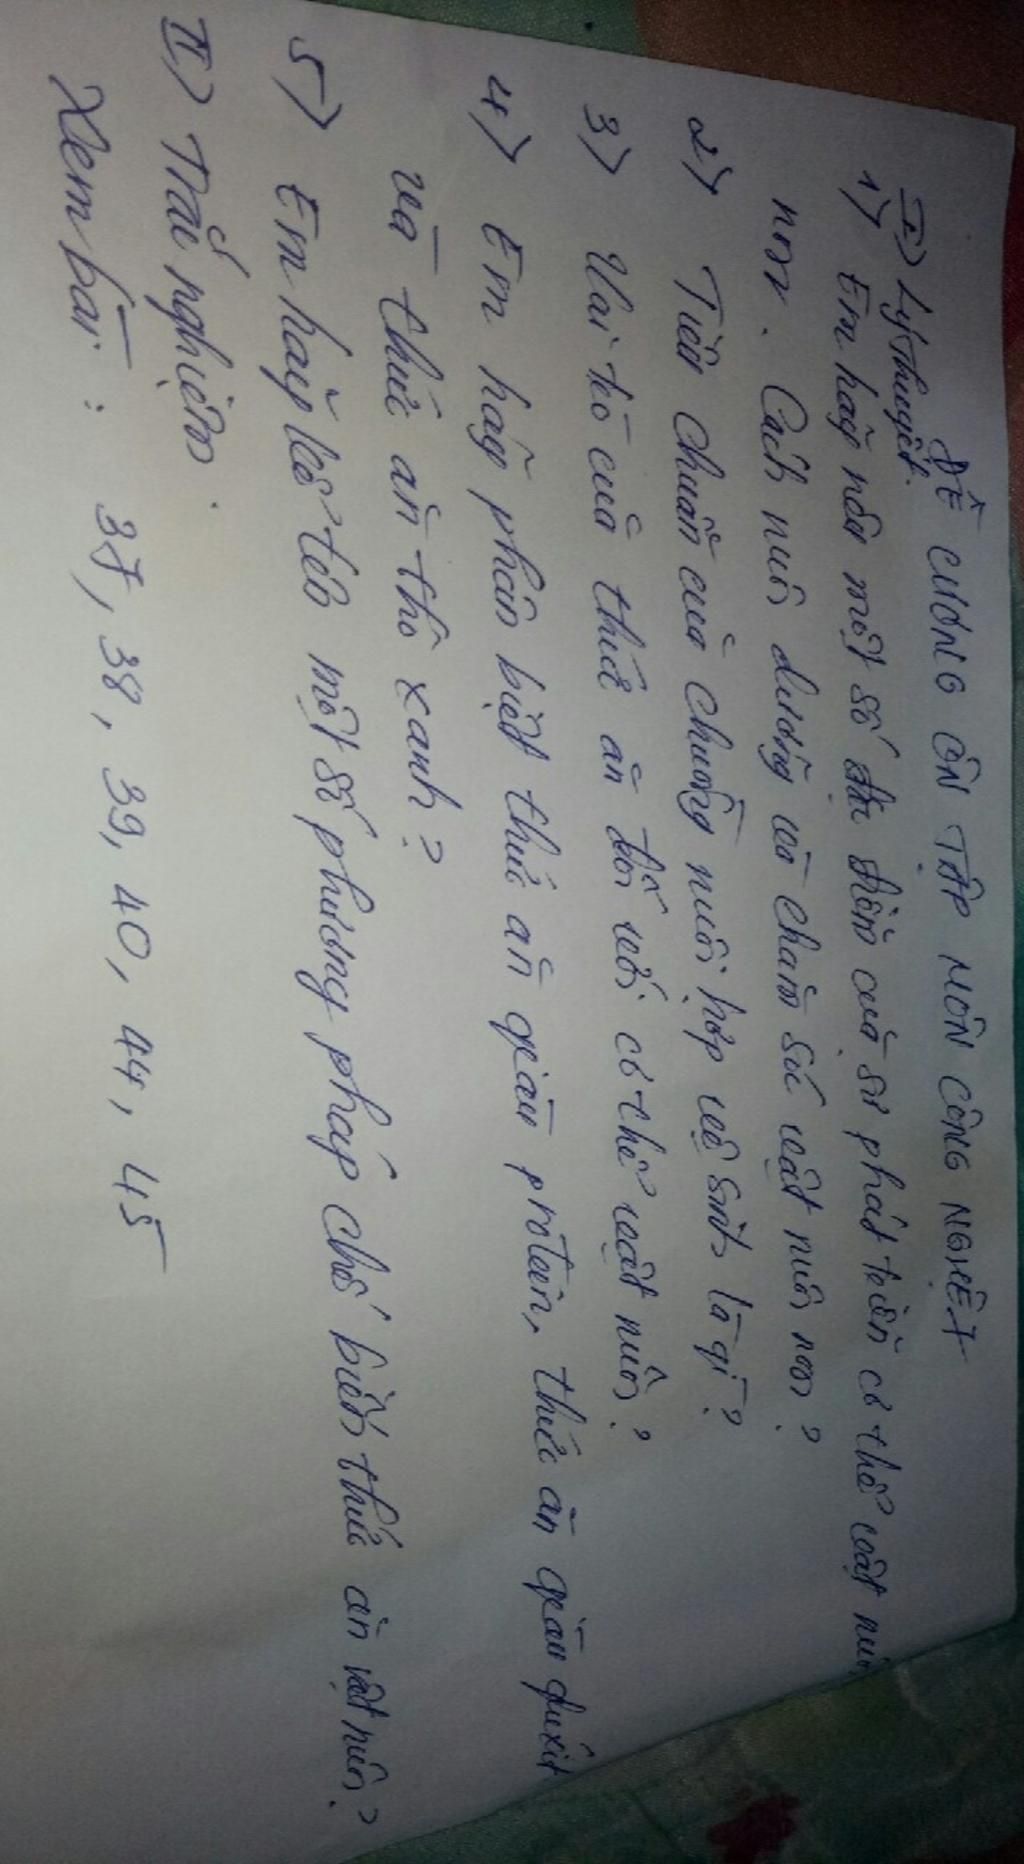 ĐỀ CƯƠNG ÔN TẬP MÔN CÔNG NGHỆ 7
I) Lý thuyết.
1) Em hãy nêu một số đặc điểm của sự phát triển cơ thể vật nuôi
non. Cách nuôi dưỡng và chăm sóc vật nuôi non?
2) Tiêu chuẩn của chuồng nuôi hợp vệ sinh là gì?
3) Vai trò của thức ăn đối với cơ thể vật nuôi?
4) Em hãy phân biệt thức ăn giàu protein, thức ăn giàu gluxit
và thức ăn thô xanh?
5) Em hãy kể tên một số phương pháp chế biến thức ăn vật nuôi?
II) Trắc nghiệm.
Xem bài: 37, 38, 39, 40, 44, 45